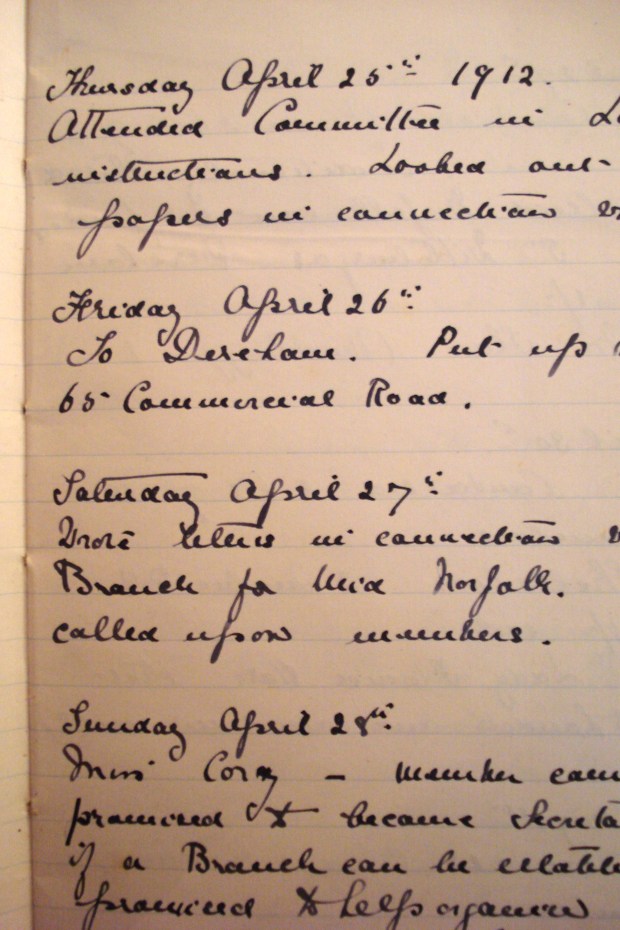 Thursday April 25th 1912.
Attended Committee in
instructions. Looked out
papers in connection
Friday April 26th
To Dereham. Put up
65 Commercial Road.
Saturday April 27th
Wrote letters in connection
Branch for Mid Norfolk.
called upon members.
Sunday April 28th
Miss Cory – member
promised to become
if a Branch can be
promised to help organise